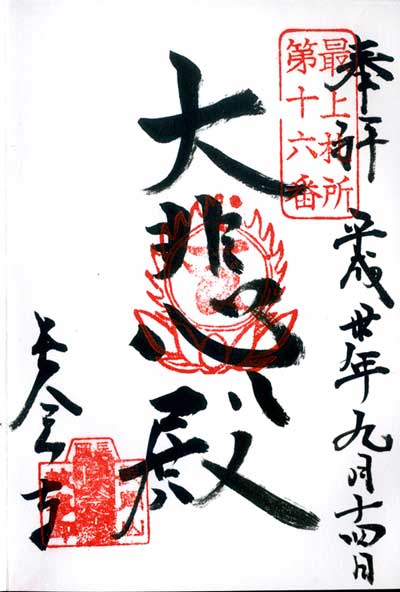 奉拝 平成廿年九月十四日
最上札所
第十六番
大悲殿
長念寺